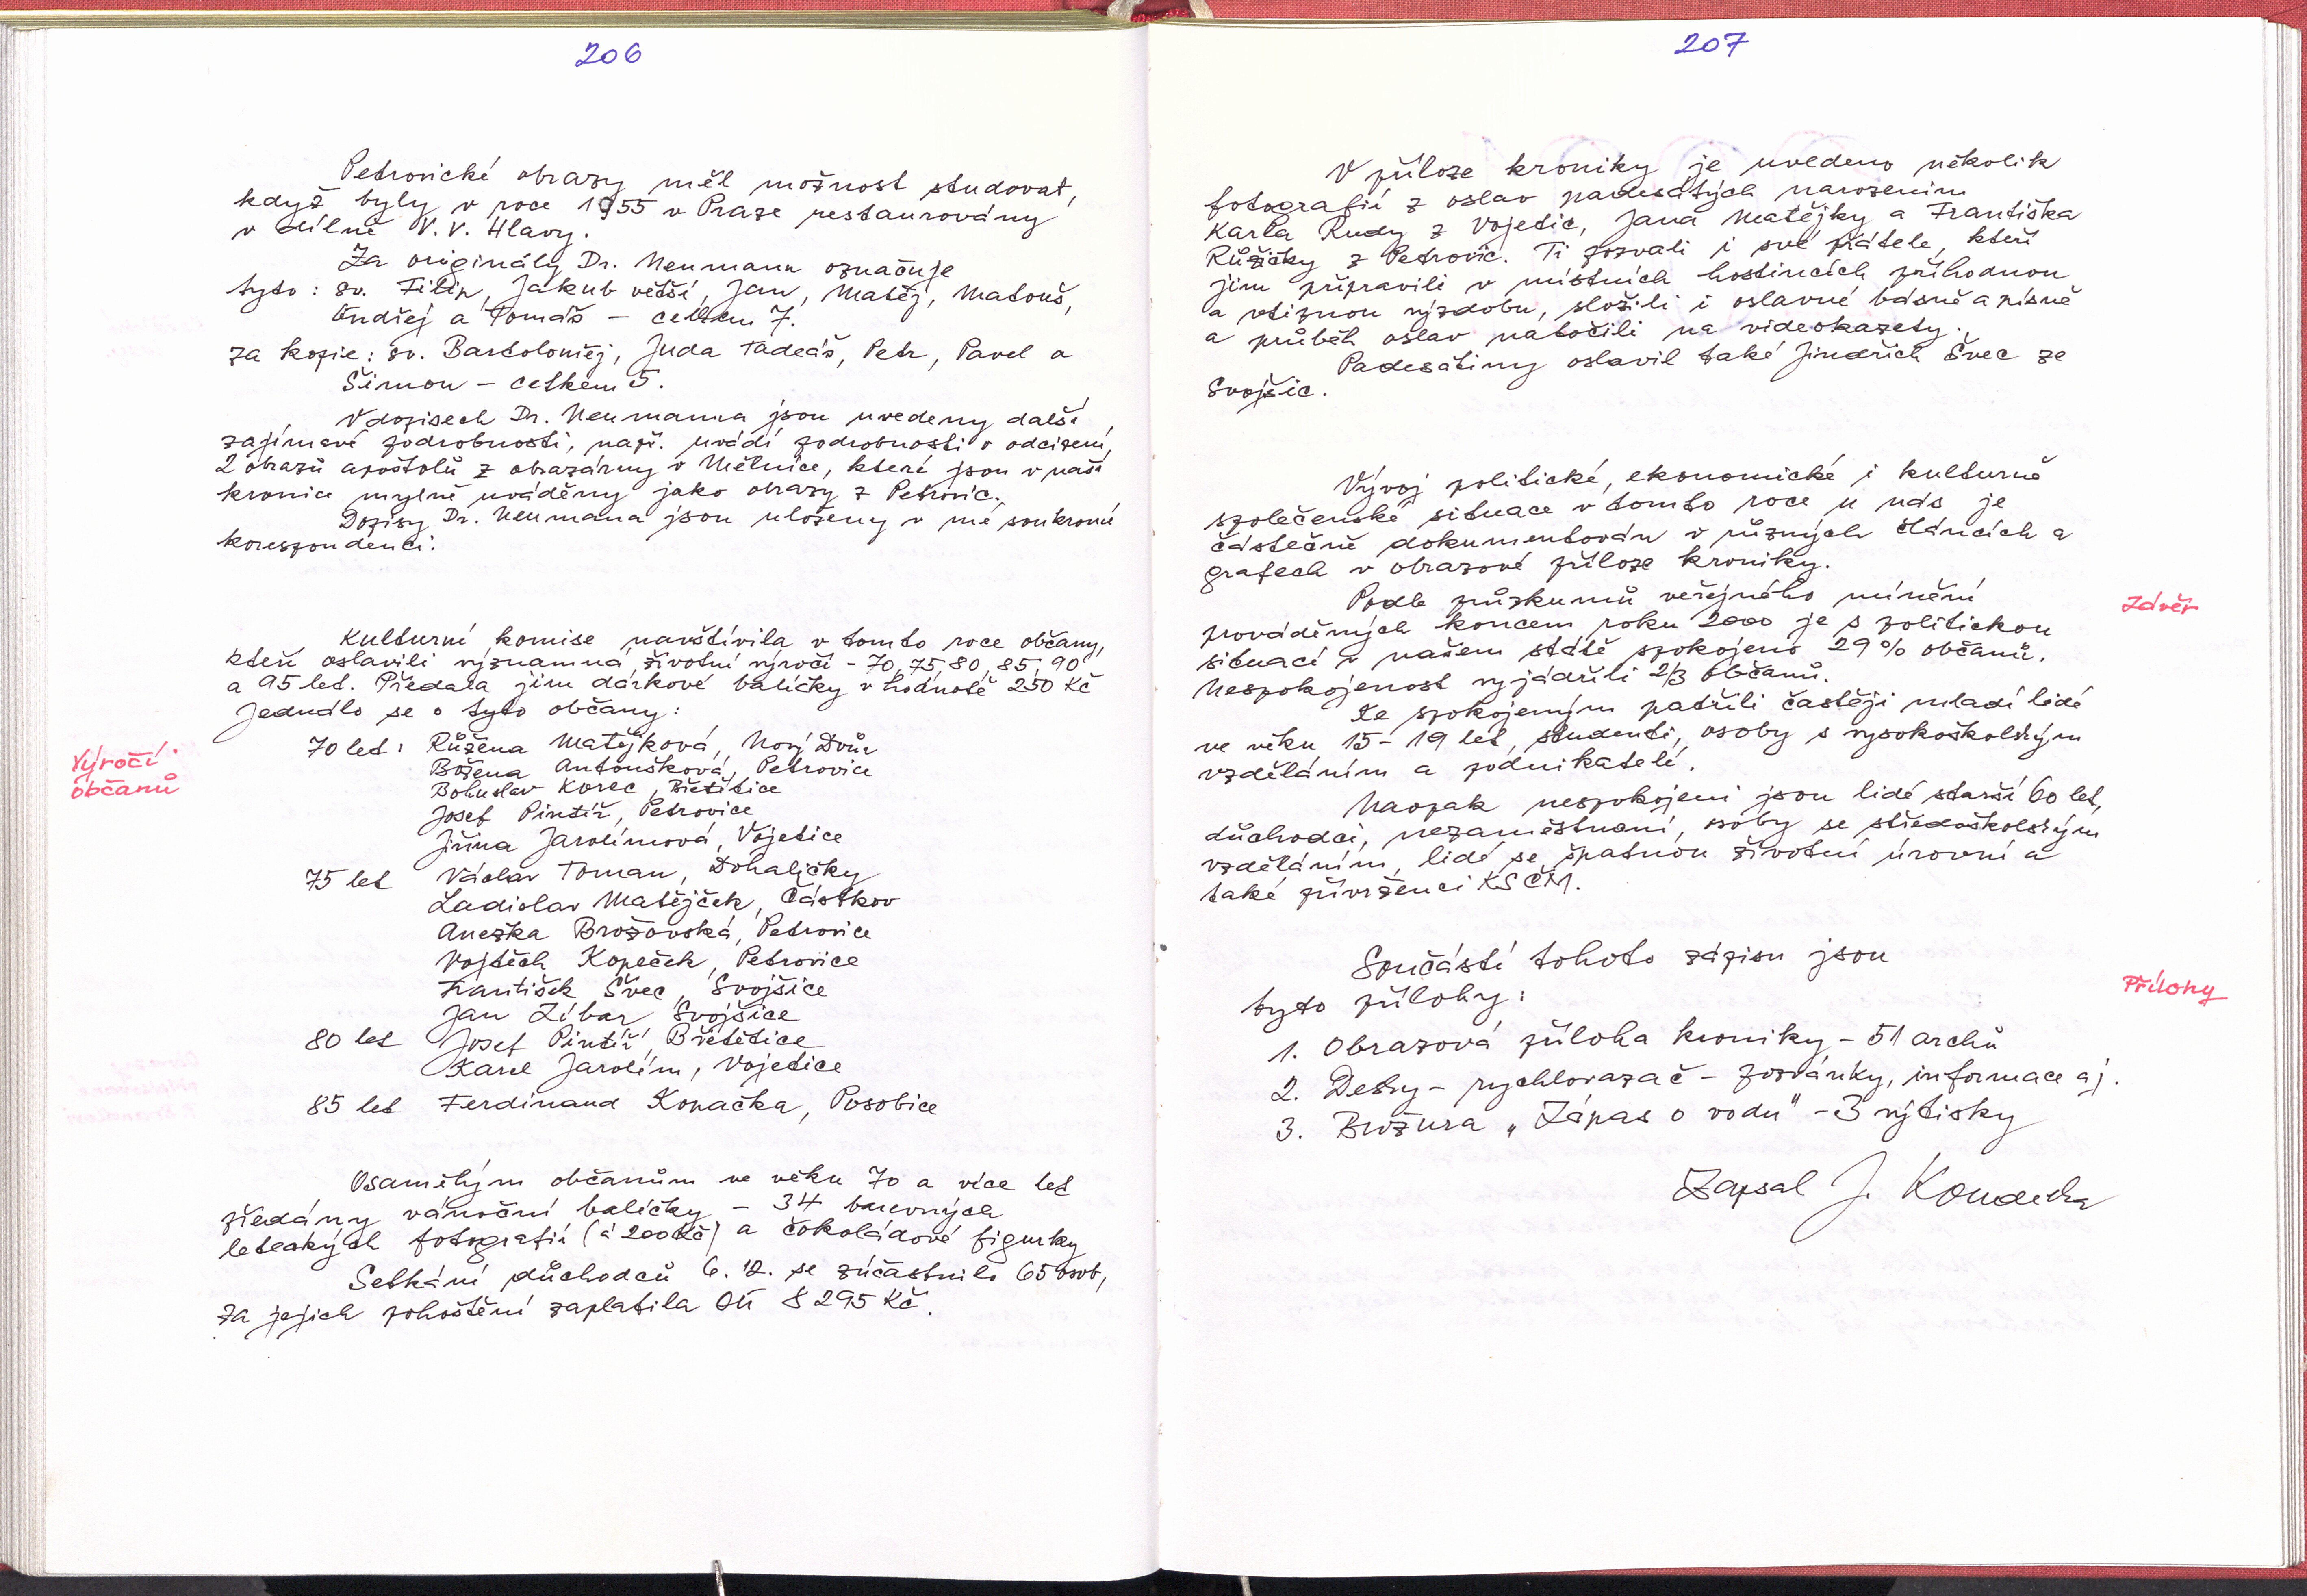 206
Petrovické obrazy měl možnost studovat,
když byly v roce 1955 v Praze restaurovány
v dílně V. V. Hlavy.
Za originály Dr. Neumann označuje
tyto: sv. Filip, Jakub větší, Jan, Matěj, Matouš,
Ondřej a Tomáš - celkem 7.
za kopie: sv. Bartoloměj, Juda Tadeáš, Petr, Pavel a
Šimon - celkem 5.
V dopisech Dr. Neumanna jsou uvedeny další
zajímavé podrobnosti, např. uvádí podrobnosti o odcizení
2 obrazů apoštolů z obrazárny v Mělníce, které jsou v naší
kronice mylně uváděny jako obrazy z Petrovic.
Dopisy Dr. Neumana jsou uloženy v mé soukromé
korespondenci.
Kulturní komise navštívila v tomto roce občany,
kteří oslavili významná životní výročí - 70, 75, 80, 85, 90
a 95 let. Předala jim dárkové balíčky v hodnotě 250 Kč
Jednalo se o tyto občany:
Výročí
občanů
70 let: Růžena Matějková, Nový Dvůr
Božena Antoušková, Petrovice
Bohuslav Korec, Břetětice
Josef Pintíř, Petrovice
Jiřina Jarolímová, Vojetice
75 let Václav Toman, Dohaličky
Ladislav Matějček, Částkov
Anežka Brožovská, Petrovice
Vojtěch Kopeček, Petrovice
František Švec, Svojšice
Jan Líbar, Svojšice
80 let Josef Pintíř, Břetětice
Karel Jarolím, Vojetice
85 let Ferdinand Kopačka, Posobice
Osamělým občanům ve věku 70 a více let
předány vánoční balíčky - 34 barevných
leteckých fotografií (á 200 Kč) a čokoládové figurky
Setkání důchodců 6. 12. se zúčastnilo 65 osob,
za jejich pohoštění zaplatila OÚ 8 295 Kč.
207
V příloze kroniky je uvedeno několik
fotografií z oslav padesátých narozenin
Karla Rudy z Vojetic, Jana Matějky a Františka
Růžičky z Petrovic. Ti pozvali i své přátele, kteří
jim připravili v místních hostincích příhodnou
a vtipnou výzdobu, složili i oslavné básně a písně
a průběh oslav natočili na videokazety.
Padesátiny oslavil také Jindřich Švec ze
Svojšic.
Vývoj politické, ekonomické i kulturně
společenské situace v tomto roce u nás je
částečně dokumentován v různých článcích a
grafech v obrazové příloze kroniky.
Závěr
Podle průzkumů veřejného mínění
prováděných koncem roku 2000 je s politickou
situací v našem státě spokojeno 29% občanů.
Nespokojenost vyjádřili 2/3 občanů.
Ke spokojeným patřili častěji mladí lidé
ve věku 15 - 19 let, studenti, osoby s vysokoškolským
vzděláním a podnikatelé.
Naopak nespokojeni jsou lidé starší 60 let,
důchodci, nezaměstnaní, osoby se středoškolským
vzděláním, lidé se špatnou životní úrovní a
také přívrženci KSČM.
Součástí tohoto zápisu jsou
tyto přílohy:
Přílohy
1. Obrazová příloha kroniky - 51 archů
2. Desky - rychlovazač - pozvánky, informace aj.
3. Brožura "Zápas o vodu" - 3 výtisky
Zapsal J. Koudelka